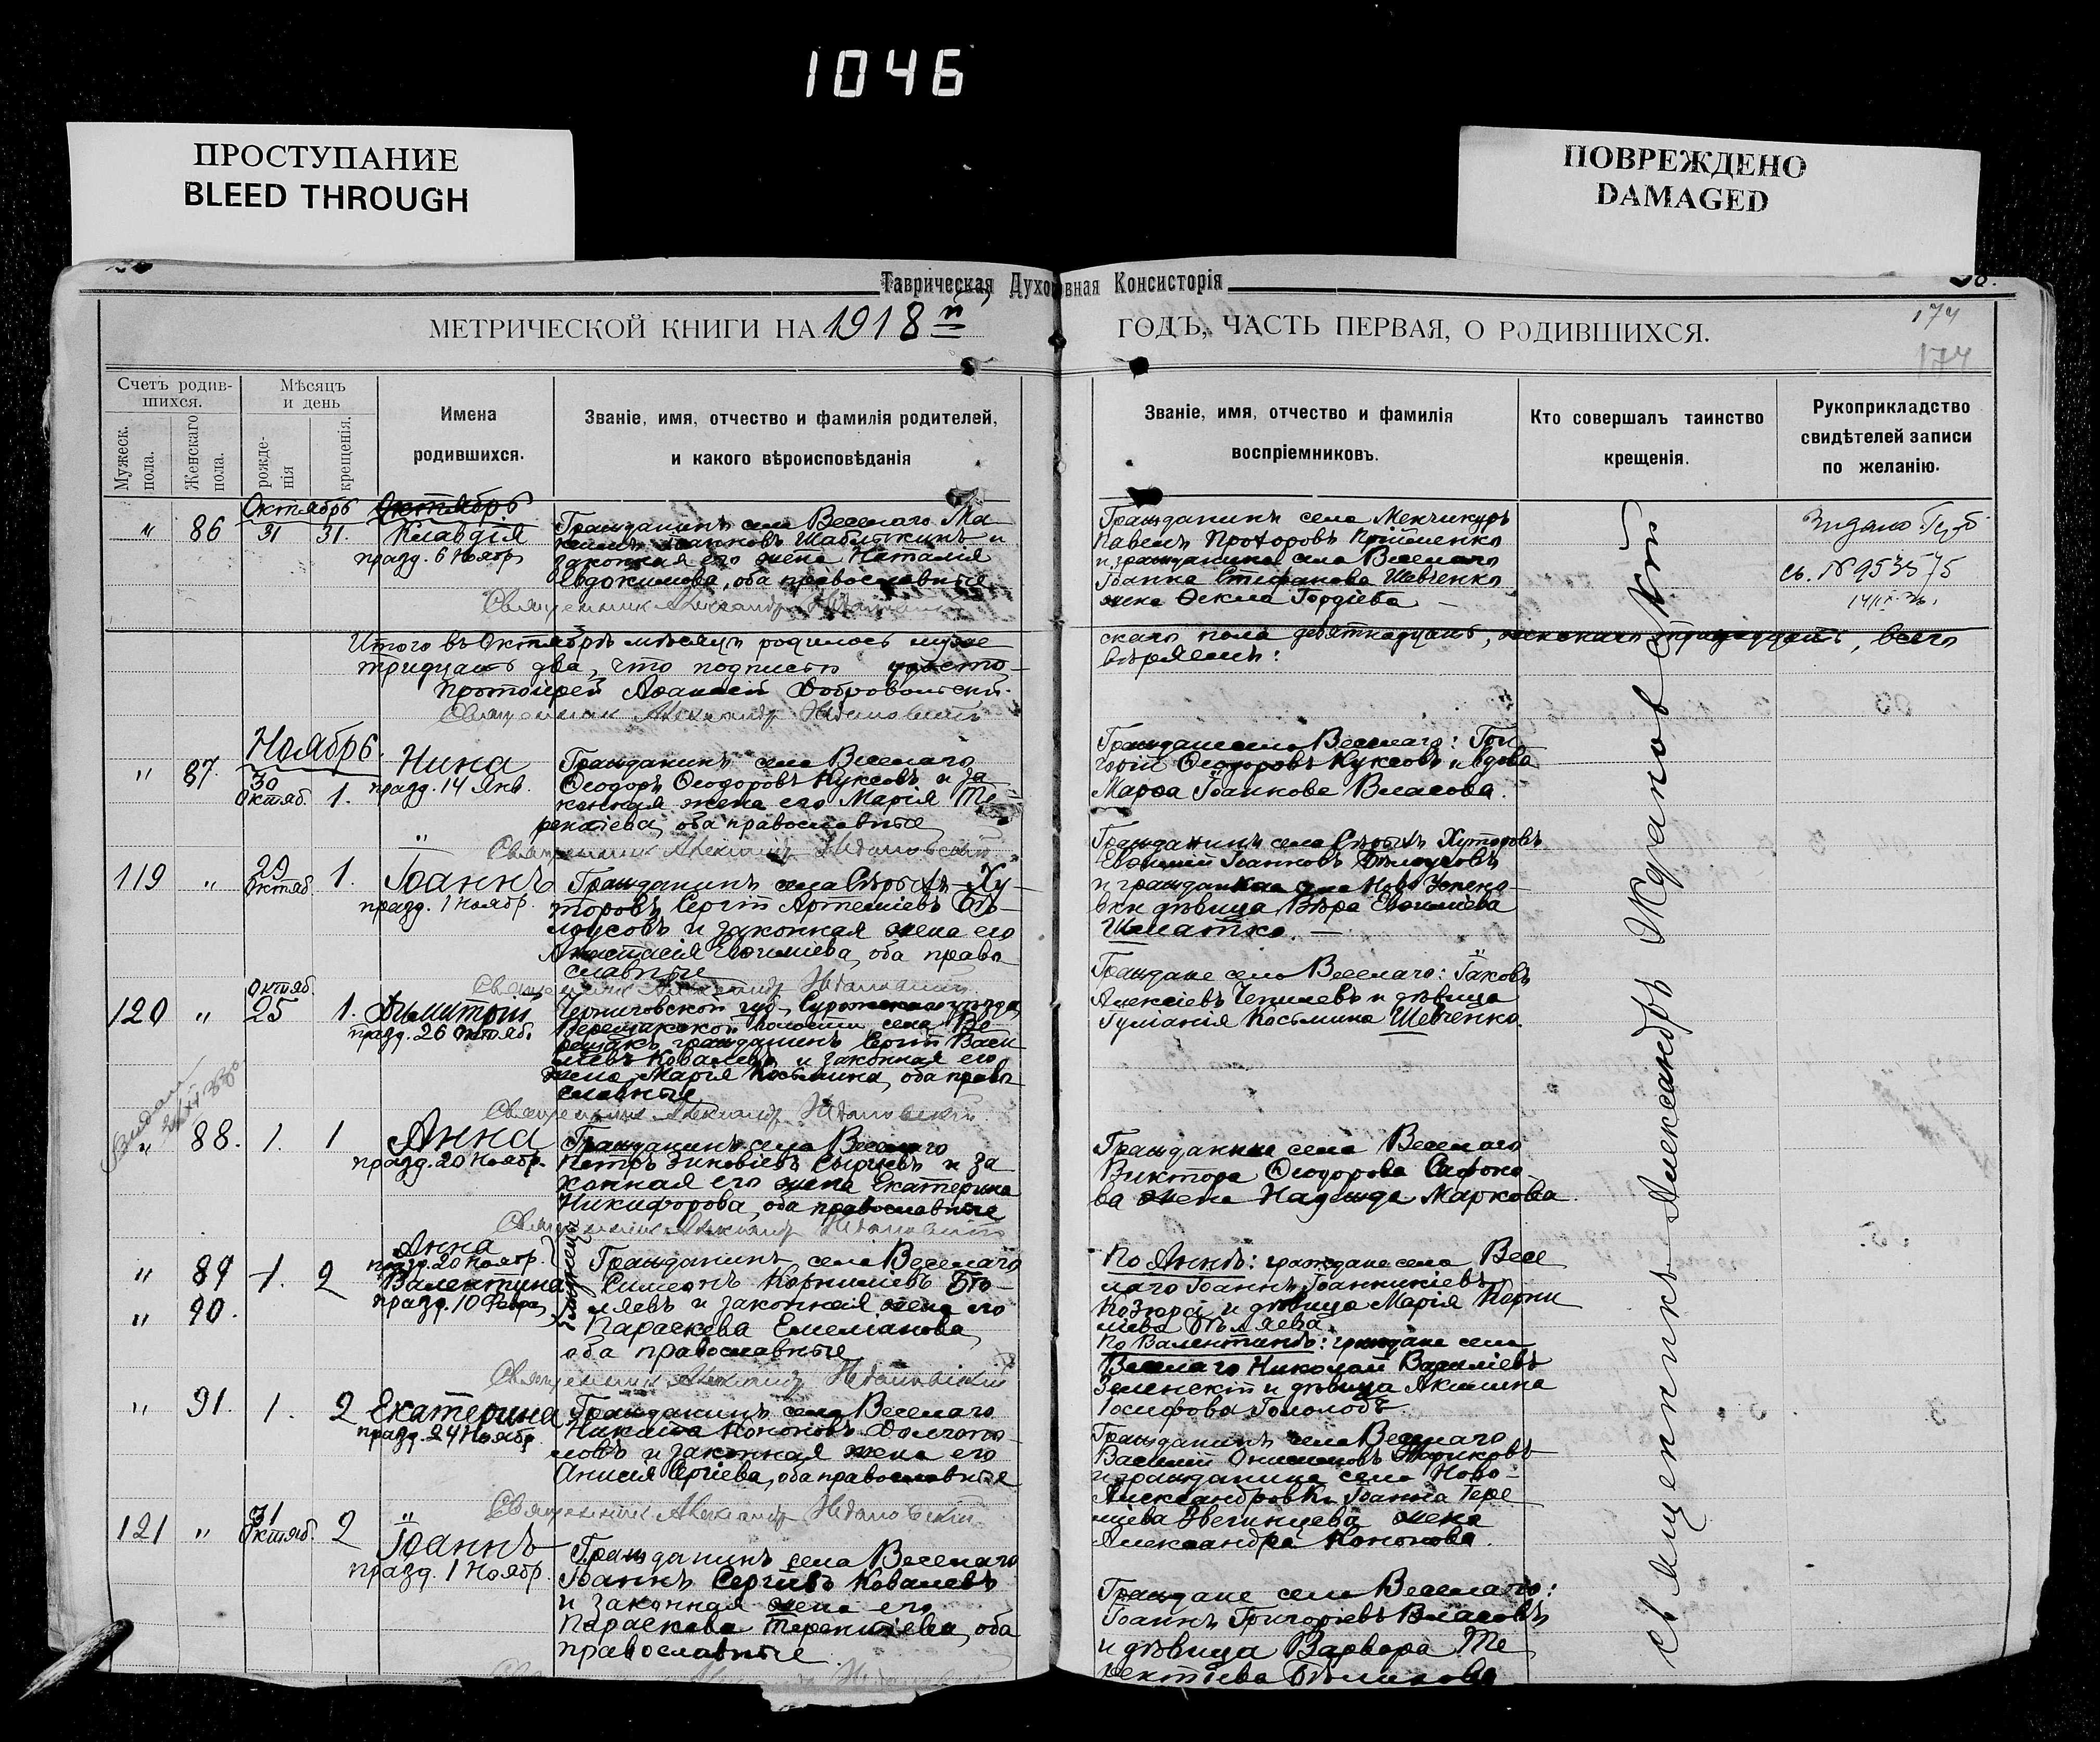 1046
ПРОСТУПАНИЕ
BLEED THROUGH
ПОВРЕЖДЕНО
DAMAGED
Таврическая Духовная Консисторія
МЕТРИЧЕСКОЙ КНИГИ НА 1918 й
ГОДЪ, ЧАСТЬ ПЕРВАЯ, О РОДИВШИХСЯ.
174
174
Счетъ родив-
шихся.
Мужеск.
пола.
Женскаго
пола.
Мѣсяцъ
и день
рожде-
нія
крещенія.
Имена
родившихся.
Званіе, имя, отчество и фамилія родителей,
и какого вѣроисповѣданія
Званіе, имя, отчество и фамилія
воспріемниковъ.
Кто совершалъ таинство
крещенія.
Рукоприкладство
свидѣтелей записи
по желанію.
Октябрь Октябрь
" 86 31 31. Клавдія
празд. 6 Ноябр
Гражданинъ села Веселаго Ма-
законная его жена Наталія
Евдокимова, оба православные
Священник Александр Ждановский
Гражданинъ села Менчикуръ
Павелъ Прохоровъ
и гражданина села Веселаго
Іоанна Стефанова Шевченко
жена Ѳекла Гордіева —
св. № 953575
Итого въ Октябрѣ мѣсяцѣ родилось муже
скаго пола девятнадцать, женскаго тринадцать, всего
тридцать два, что подписью удосто-
вѣряемъ:
Протоіерей Добровольскій.
Священник Александр Ждановский
Ноябрь.
" 87. 30 Октяб. 1. Нина
празд. 14 Янв.
Гражданинъ села Веселаго
Ѳеодоръ Ѳеодоровъ Куксовъ и за
конная жена его Марія Те
рентіева, оба православные
Священник Александр Ждановский
Граждане села Веселаго: Гри
горій Ѳеодоровъ Куксовъ и вдова
Марѳа Іоаннова Власова.
119 " 29 Октяб. 1. Іоаннъ
празд. 1 Ноябр.
Гражданинъ села Сѣрыхъ Ху-
торовъ Сергій Артеміевъ Бѣ-
лоусовъ и законная жена его
Анастасія Евѳиміева, оба право
славные
Священник Александр Ждановский
Гражданинъ села Сѣрыхъ Хуторовъ
Евѳимій Іоанновъ Бѣлоусовъ
и гражданка села Ново Успено-
вки дѣвица Вѣра Евѳиміева
Шматко. —
120 " Октяб. 25 1. Дьмитрій
празд. 26 Октяб.
Черниговской губ. Суражскаго уѣзда
Верещакской волости села Ве
рещакъ гражданинъ Сергій Васи
ліевъ Ковалевъ и законная его
жена Марія Косьмина, оба право
славные
Священник Александр Ждановский
Граждане села Веселаго: Іаковъ
Алексіевъ Чепилевъ и дѣвица
Іуліанія Косьмина Шевченко.
" 88. 1. 1 Анна
празд. 20 Ноябр.
Гражданинъ села Веселаго
Петръ Зиновіевъ и за
конная его жена Екатерина
Никифорова, оба православные
Священник Александр Ждановский
Гражданина села Веселаго
Виктора Ѳеодорова Сафоно-
ва жена Надежда Маркова
" 89 1. 2 Анна
празд. 20 Ноябр.
Валентина
" 90. празд. 10 Февр.
близнецы
Гражданинъ села Веселаго
Симеонъ Корниліевъ Бѣ-
ляевъ и законная жена его
Параскева Емеліанова
оба православные
Священник Александр Ждановский
По Аннѣ: граждане села Весе
лаго Іоаннъ Іоанникіевъ
Козюра и дѣвица Марія Корни
ліева Бѣляева.
По Валентинѣ: граждане села
Веселаго Николай Василіевъ
Зеленскій и дѣвица Акилина
Іосифова Гололобъ.
" 91. 1. 2 Екатерина
празд. 24 Ноябр
Гражданинъ села Веселаго
Никита Кононовъ Долгопо-
ловъ и законная жена его
Анисія Сергіева, оба православные
Священник Александр Ждановский
Гражданинъ села Веселаго
Василій Онисимовъ
и гражданина села Ново-
Александровки Іоанна Тере
нтіева Звегинцева жена
Александра Кононова.
121 " 31 Октяб. 2 Іоаннъ
празд. 1 Ноябр.
Гражданинъ села Веселаго
Іоаннъ Сергіевъ Ковалевъ
и законная жена его
Параскева Терентіева, оба
православные
Граждане села Веселаго:
Іоаннъ Григоріевъ Власовъ
и дѣвица Варвара Те
рентіева Бѣликова
Священникъ Александръ Ждановскій